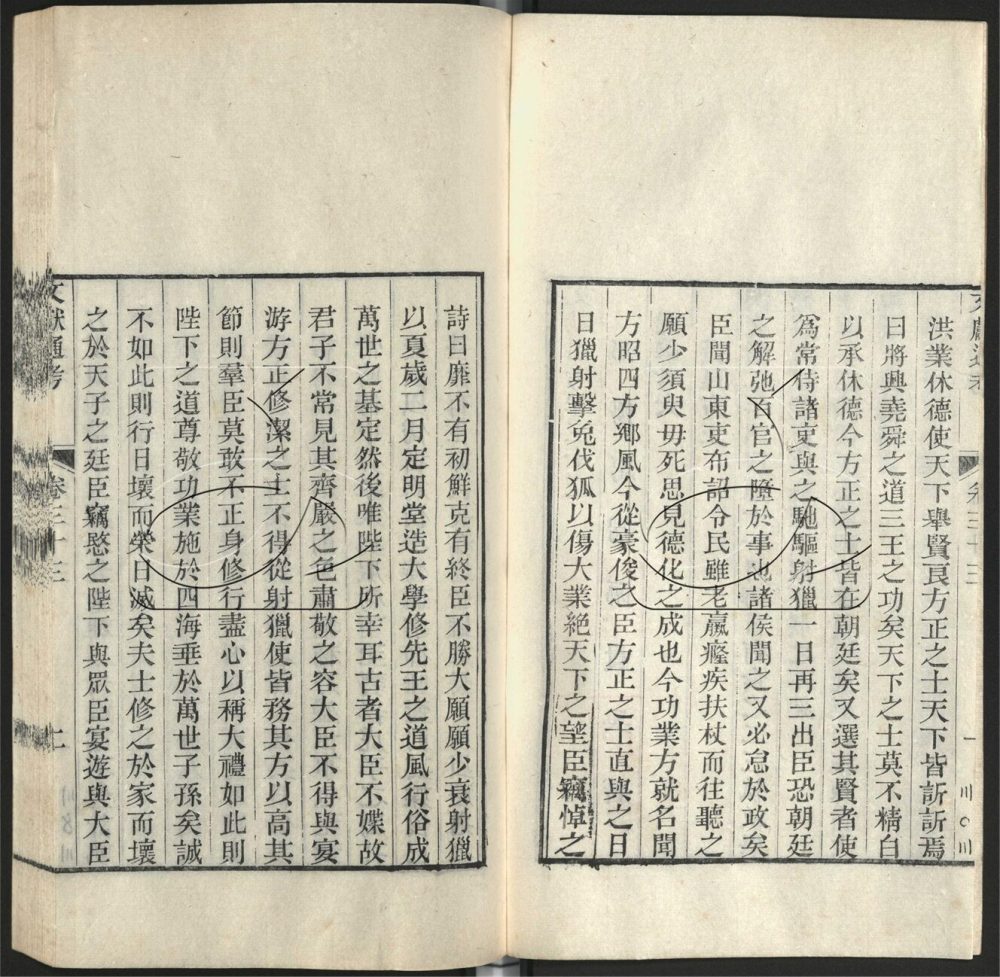 洪業休德使天下舉賢良方正之士天下皆訢訢焉
曰將興堯舜之道三王之功矣天下之士莫不精白
以承休德今方正之士皆在朝廷矣又選其賢者使
爲常侍諸吏與之馳驅射獵一日再三出臣恐朝廷
之解弛百官之墮於事也諸侯聞之又必怠於政矣
臣聞山東吏布詔令民雖老羸癃疾扶杖而往聽之
願少須臾毋死思見德化之成也今功業方就名聞
方昭四方鄉風今從豪俊之臣方正之士直與之日
日獵射擊兔伐狐以傷大業絶天下之望臣竊悼之
詩曰靡不有初鮮克有終臣不勝大願願少衰射獵
以夏歲二月定明堂造大學修先王之道風行俗成
萬世之基定然後唯陛下所幸耳古者大臣不媟故
君子不常見其齊嚴之色肅敬之容大臣不得與宴
游方正修潔之士不得從射獵使皆務其方以高其
節則羣臣莫敢不正身修行盡心以稱大禮如此則
陛下之道尊敬功業施於四海垂於萬世子孫矣誠
不如此則行日壞而榮日滅矣夫士修之於家而壞
之於天子之廷臣竊愍之陛下與眾臣宴遊與大臣
文獻通考 卷三十三